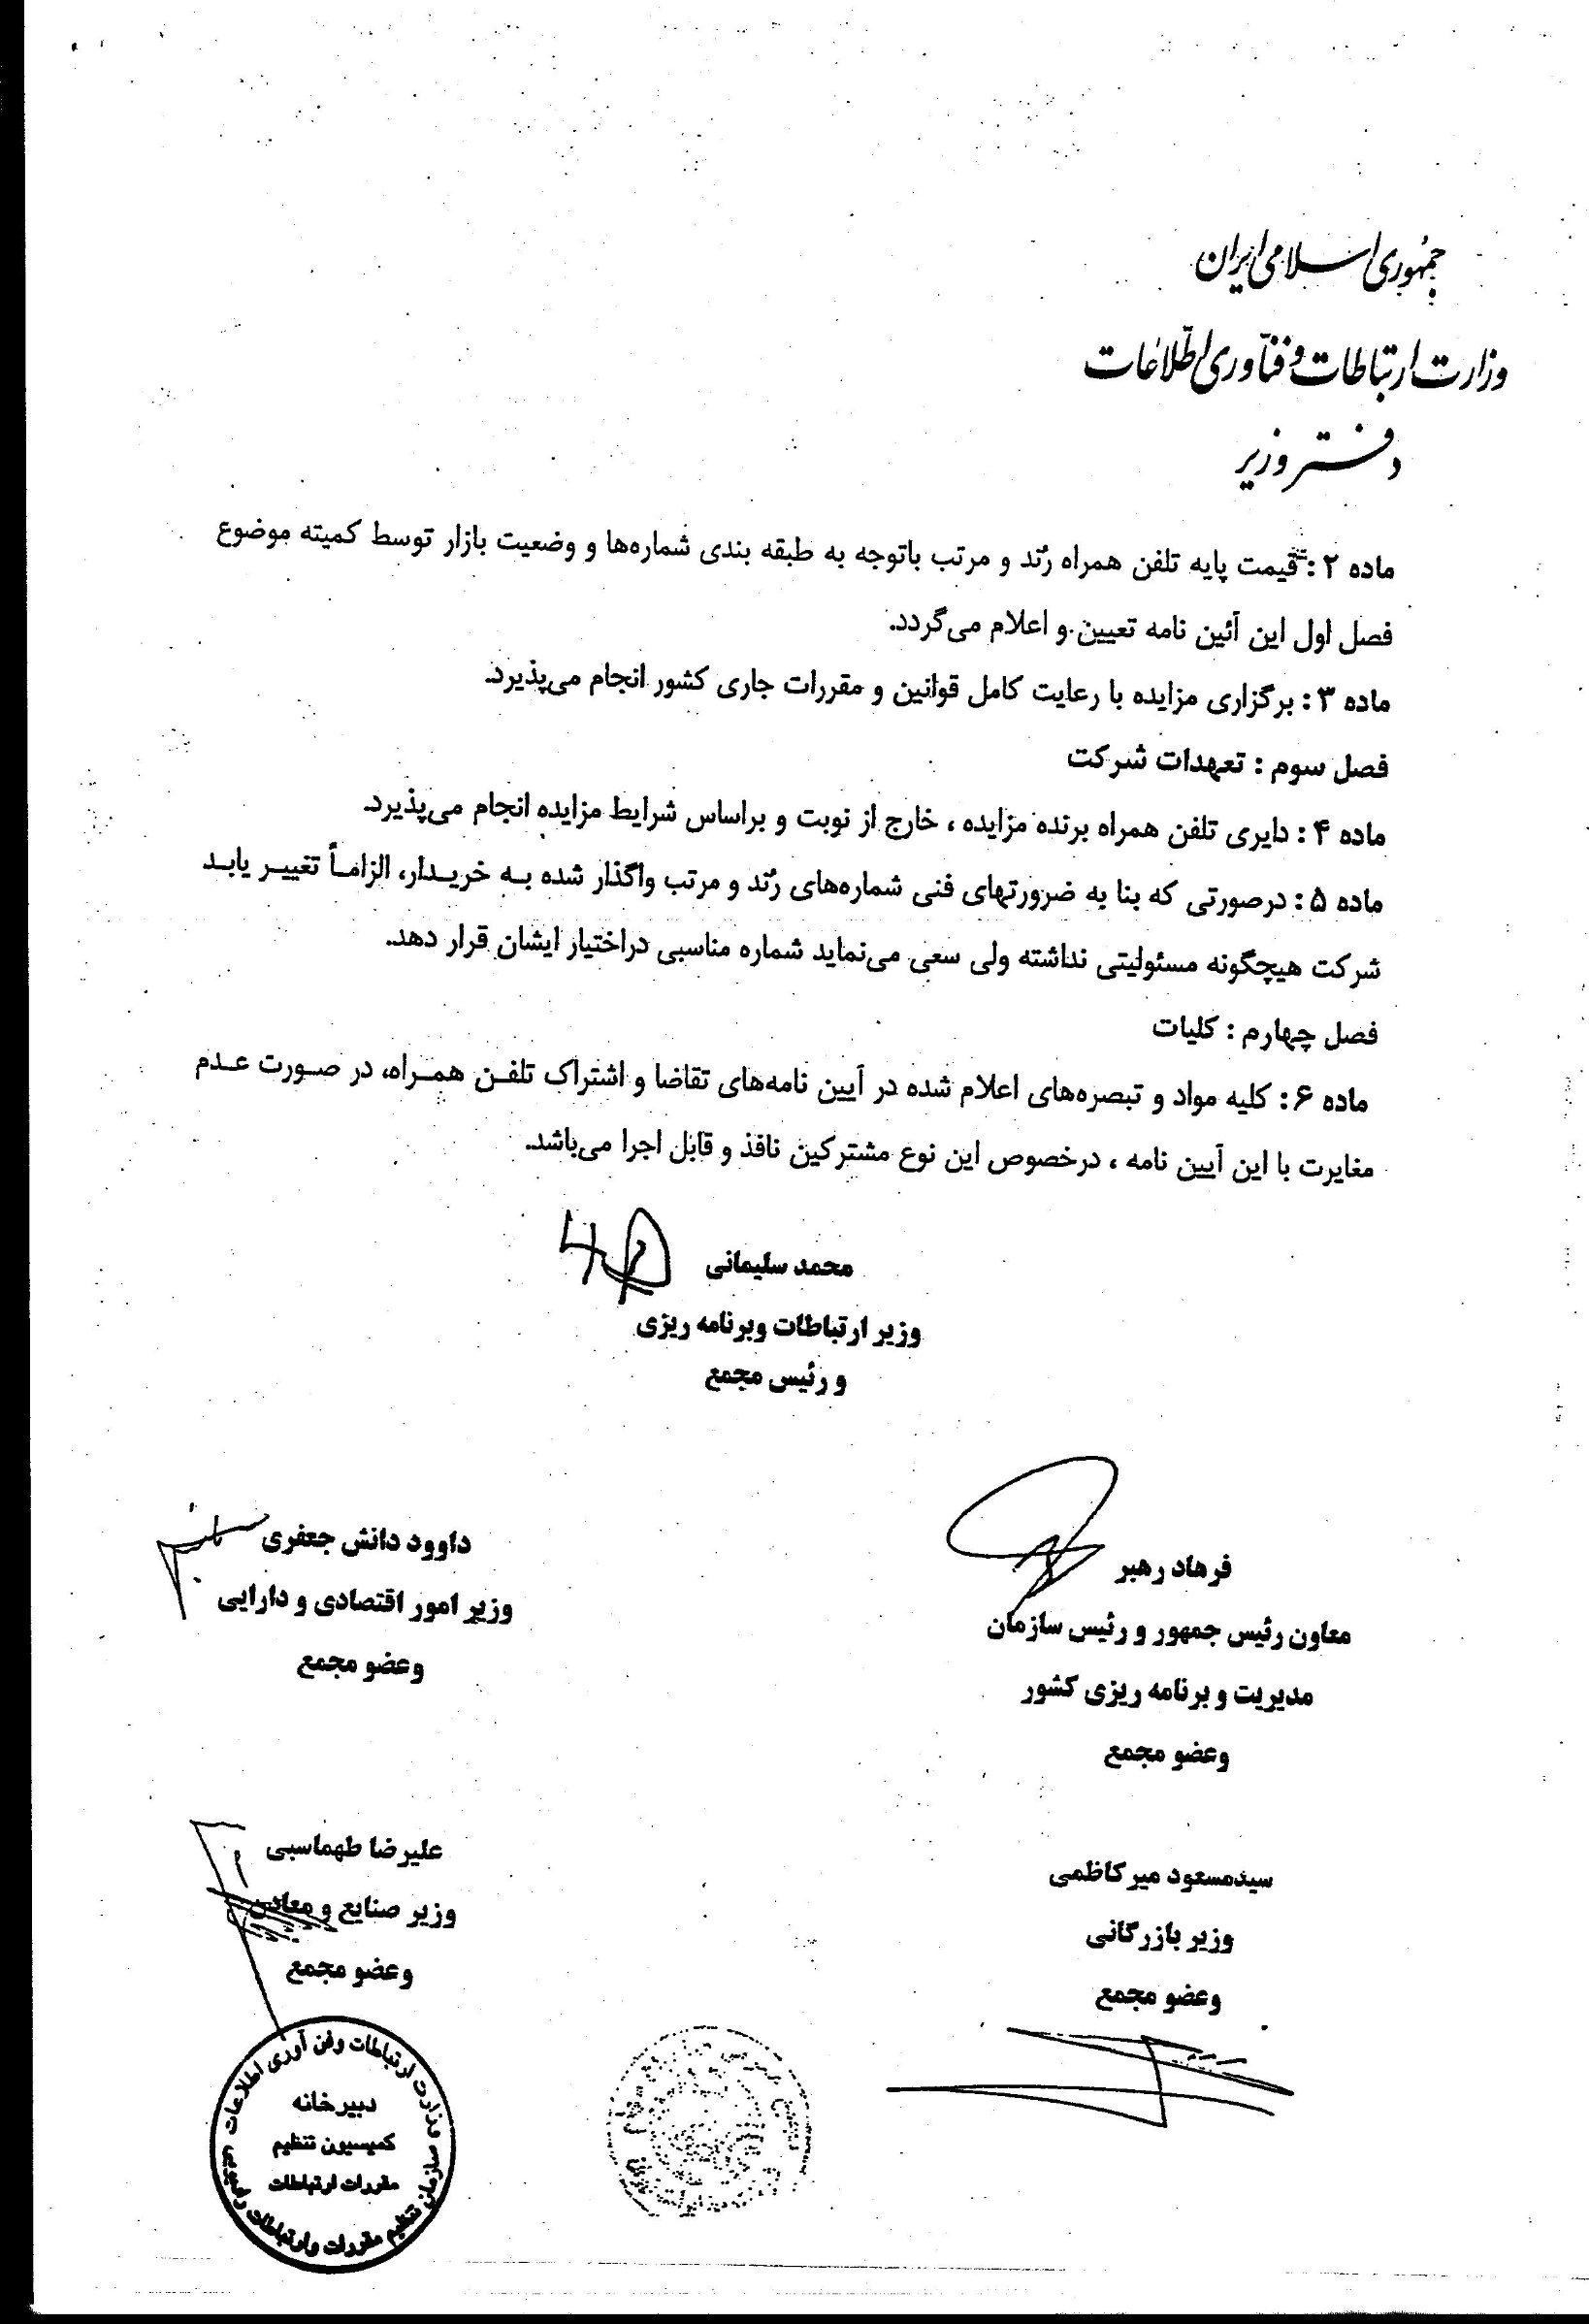 جمهوری اسلامی ایران
وزارت ارتباطات و فنّاوری اطّلاعات
دفتر وزیر
ماده ۲ : قیمت پایه تلفن همراه رُند و مرتب باتوجه به طبقه بندی شماره‌ها و وضعیت بازار توسط کمیته موضوع
فصل اول این آئین نامه تعیین و اعلام می‌گردد.
ماده ۳ : برگزاری مزایده با رعایت کامل قوانین و مقررات جاری کشور انجام می‌پذیرد.
فصل سوم : تعهدات شرکت
ماده ۴ : دایری تلفن همراه برنده مزایده ، خارج از نوبت و براساس شرایط مزایده انجام می‌پذیرد.
ماده ۵ : درصورتی که بنا به ضرورتهای فنی شماره‌های رُند و مرتب واگذار شده به خریدار، الزاماً تغییر یابد
شرکت هیچگونه مسئولیتی نداشته ولی سعی می‌نماید شماره مناسبی دراختیار ایشان قرار دهد.
فصل چهارم : کلیات
ماده ۶ : کلیه مواد و تبصره‌های اعلام شده در آیین نامه‌های تقاضا و اشتراک تلفن همراه، در صورت عدم
مغایرت با این آیین نامه ، درخصوص این نوع مشترکین نافذ و قابل اجرا می‌باشد.
محمد سلیمانی
وزیر ارتباطات وبرنامه ریزی
و رئیس مجمع
فرهاد رهبر
معاون رئیس جمهور و رئیس سازمان
مدیریت و برنامه ریزی کشور
وعضو مجمع
داوود دانش جعفری
وزیر امور اقتصادی و دارایی
وعضو مجمع
سیدمسعود میرکاظمی
وزیر بازرگانی
وعضو مجمع
علیرضا طهماسبی
وزیر صنایع و معادن
وعضو مجمع
وزارت ارتباطات وفن آوری اطلاعات
دبیرخانه
کمیسیون تنظیم
مقررات ارتباطات
سازمان تنظیم مقررات وارتباطات رادیویی